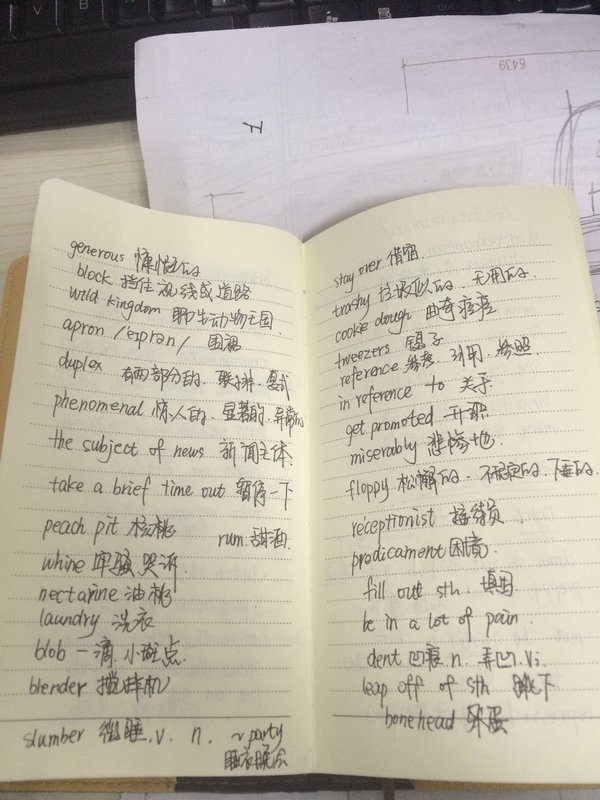 6439
generous 慷慨的
block 挡住视线或道路
wild kingdom 野生动物王国
apron /eɪprən/ 围裙
duplex 有两部分的、联排、复式
phenomenal 惊人的、显著的、异常的
the subject of news 新闻主体
take a brief time out 暂停一下
peach pit 核桃 rum 甜酒
whine 牢骚 哭诉
nectarine 油桃
laundry 洗衣
blob 一滴、小斑点
blender 搅拌机
slumber 微睡、v. n. ~party
睡衣晚会
stay over 借宿
trashy 垃圾似的、无用的
cookie dough 曲奇
tweezers 镊子
reference 参考、引用、参照
in reference to 关于
get promoted 升职
miserably 悲惨地
floppy 松懈的、不确定的、下垂的
receptionist 接待员
predicament 困境
fill out sth. 填写
be in a lot of pain
dent 凹痕 n. 弄凹 vi.
leap off of sth 跳下
bonehead 笨蛋